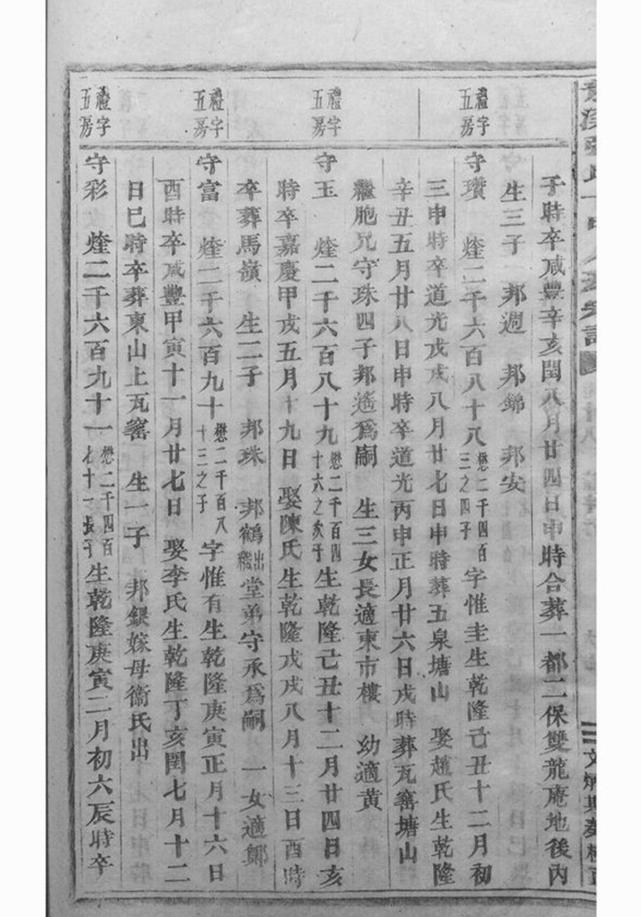 子時卒咸豐辛亥閏八月廿四日申時合葬一都二保雙龍庵地後內
生三子 邦週 邦錦 邦安
禮字五房
守瓚 煃二千六百八十八懋二千四百三之四子字惟圭生乾隆己丑十二月初
三申時卒道光戊戌八月廿七日申時葬五泉塘山 娶趙氏生乾隆
辛丑五月廿八日申時卒道光丙申正月廿六日戌時葬瓦窰塘山
繼胞兄守珠四子邦遙爲嗣 生三女長適東市樓 幼適黃
禮字五房
守玉 煃二千六百八十九懋二千百四十六之次子生乾隆己丑十二月廿四日亥
時卒嘉慶甲戌五月十九日 娶陳氏生乾隆戊戌八月十三日酉時
卒葬馬嶺 生二子 邦珠 邦鶴出繼堂弟守承爲嗣 一女適鄭
禮字五房
守富 煃二千六百九十懋二千百八十三之子字惟有生乾隆庚寅正月十六日
酉時卒咸豐甲寅十一月廿七日 娶李氏生乾隆丁亥閏七月十二
日巳時卒葬東山上瓦窰 生一子 邦鍰嫁母衞氏出
禮字五房
守彩 煃二千六百九十一懋二千四百七十一長子生乾隆庚寅二月初六辰時卒